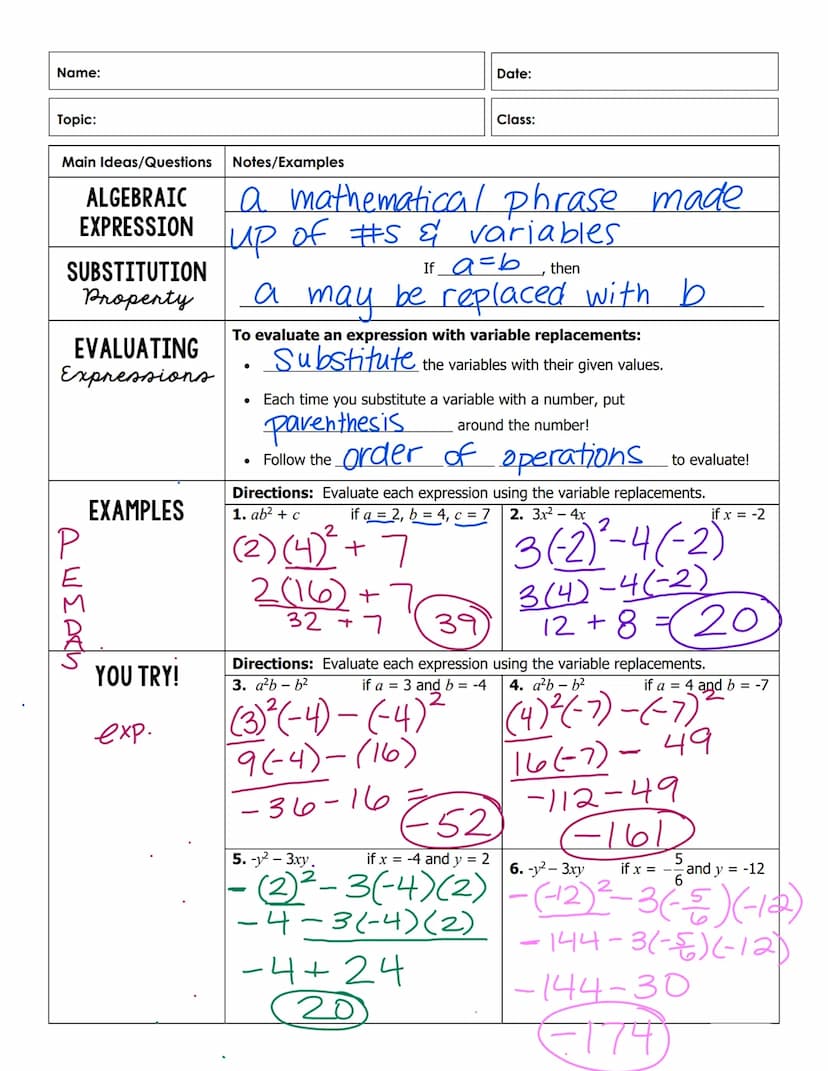 Name:
Date:
Topic:
Class:
Main Ideas/Questions
Notes/Examples
ALGEBRAIC
EXPRESSION
a mathematical phrase made
up of #s & variables
SUBSTITUTION
Property
If a=b, then
a may be replaced with b
EVALUATING
Expressions
To evaluate an expression with variable replacements:
• Substitute the variables with their given values.
• Each time you substitute a variable with a number, put
parenthesis around the number!
• Follow the order of operations to evaluate!
EXAMPLES
P
E
M
D
A
S
Directions: Evaluate each expression using the variable replacements.
1. ab² + c if a = 2, b = 4, c = 7
(2)(4)² + 7
2(16) + 7
32 + 7
39
2. 3x² – 4x if x = -2
3(-2)²-4(-2)
3(4) -4(-2)
12 + 8 = 20
YOU TRY!
exp.
Directions: Evaluate each expression using the variable replacements.
3. a²b – b² if a = 3 and b = -4
(3)²(-4) - (-4)²
9(-4) - (16)
-36 - 16 =
-52
4. a²b – b² if a = 4 and b = -7
(4)²(-7) - (-7)²
16(-7) - 49
-112 - 49
-161
5. -y² – 3xy if x = -4 and y = 2
- (2)² - 3(-4)(2)
-4 - 3(-4)(2)
-4 + 24
20
6. -y² – 3xy if x = -5/6 and y = -12
-(-12)² - 3(-5/6)(-12)
-144 - 3(-5/6)(-12)
-144 - 30
-174